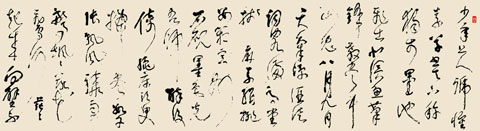 少年上人號懷
素草書天下稱
獨步墨池
飛出北溟魚筆
鋒殺盡中
山兔八月九月
天氣涼酒徒
詞客滿高堂
牋麻素絹排
數箱宣州
石硯墨色光
吾師醉後
倚繩床須臾
掃盡數千
張飄風驟雨
驚颯颯落花
飛雪何茫茫
起來向壁不